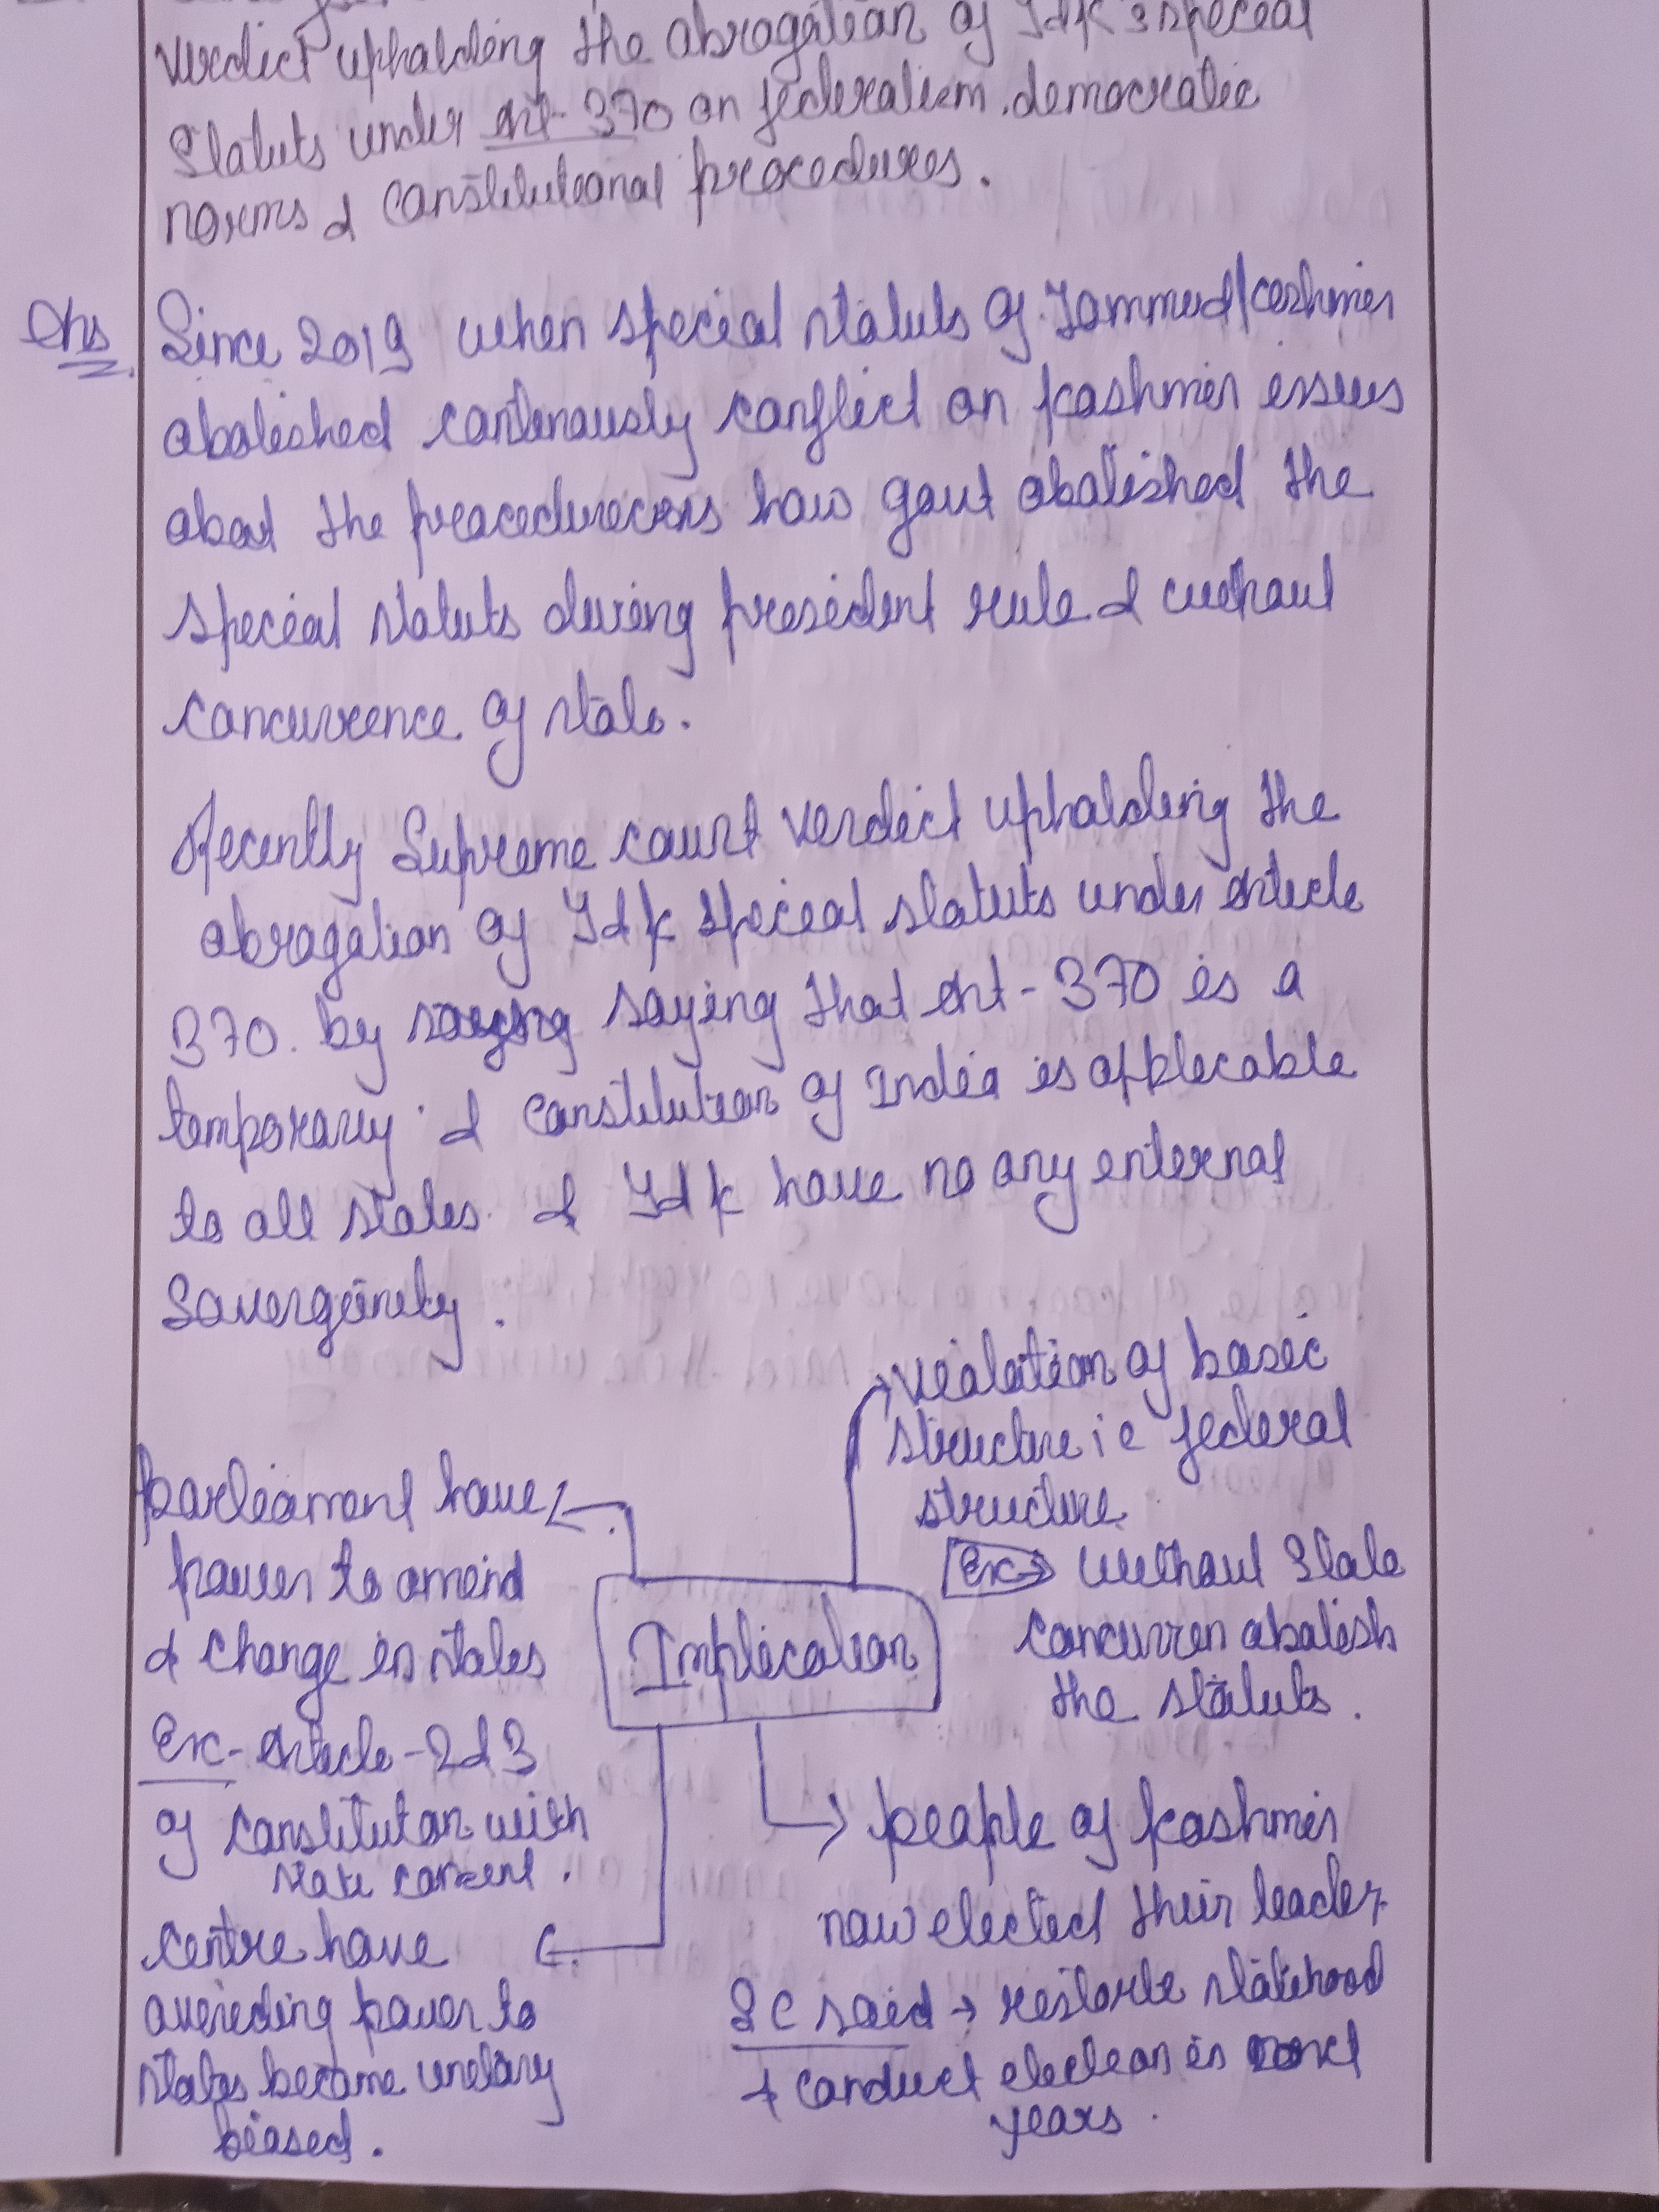 verdict upholding the abrogation of J&K's special
Status under Art-370 on federalism, democratic
norms & constitutional procedures.
Ans
Since 2019 when special status of Jammu &/coshmir
abolished contenously conflict on Kashmir issues
about the how govt abolished the
special status during president rule & without
concurrence of state.
Recently Supreme court verdict upholding the
abrogation of J&K special status under Article
370. by saying that Art-370 is a
temporary & constitution of India is applicable
to all states & J&K have no any internal
Sovergeinity.
Implication
violation of basic
structure i e federal
structure
Ex→ without State
concurren abolish
the status.
parliament have
power to amend
& change in states
Ex- Article-2&3
of constitution with
state consent.
people of Kashmir
now elected their leader
SC said → restore statehood
+ conduct election in next
years.
centre have
overriding power to
states become unitary
biased.